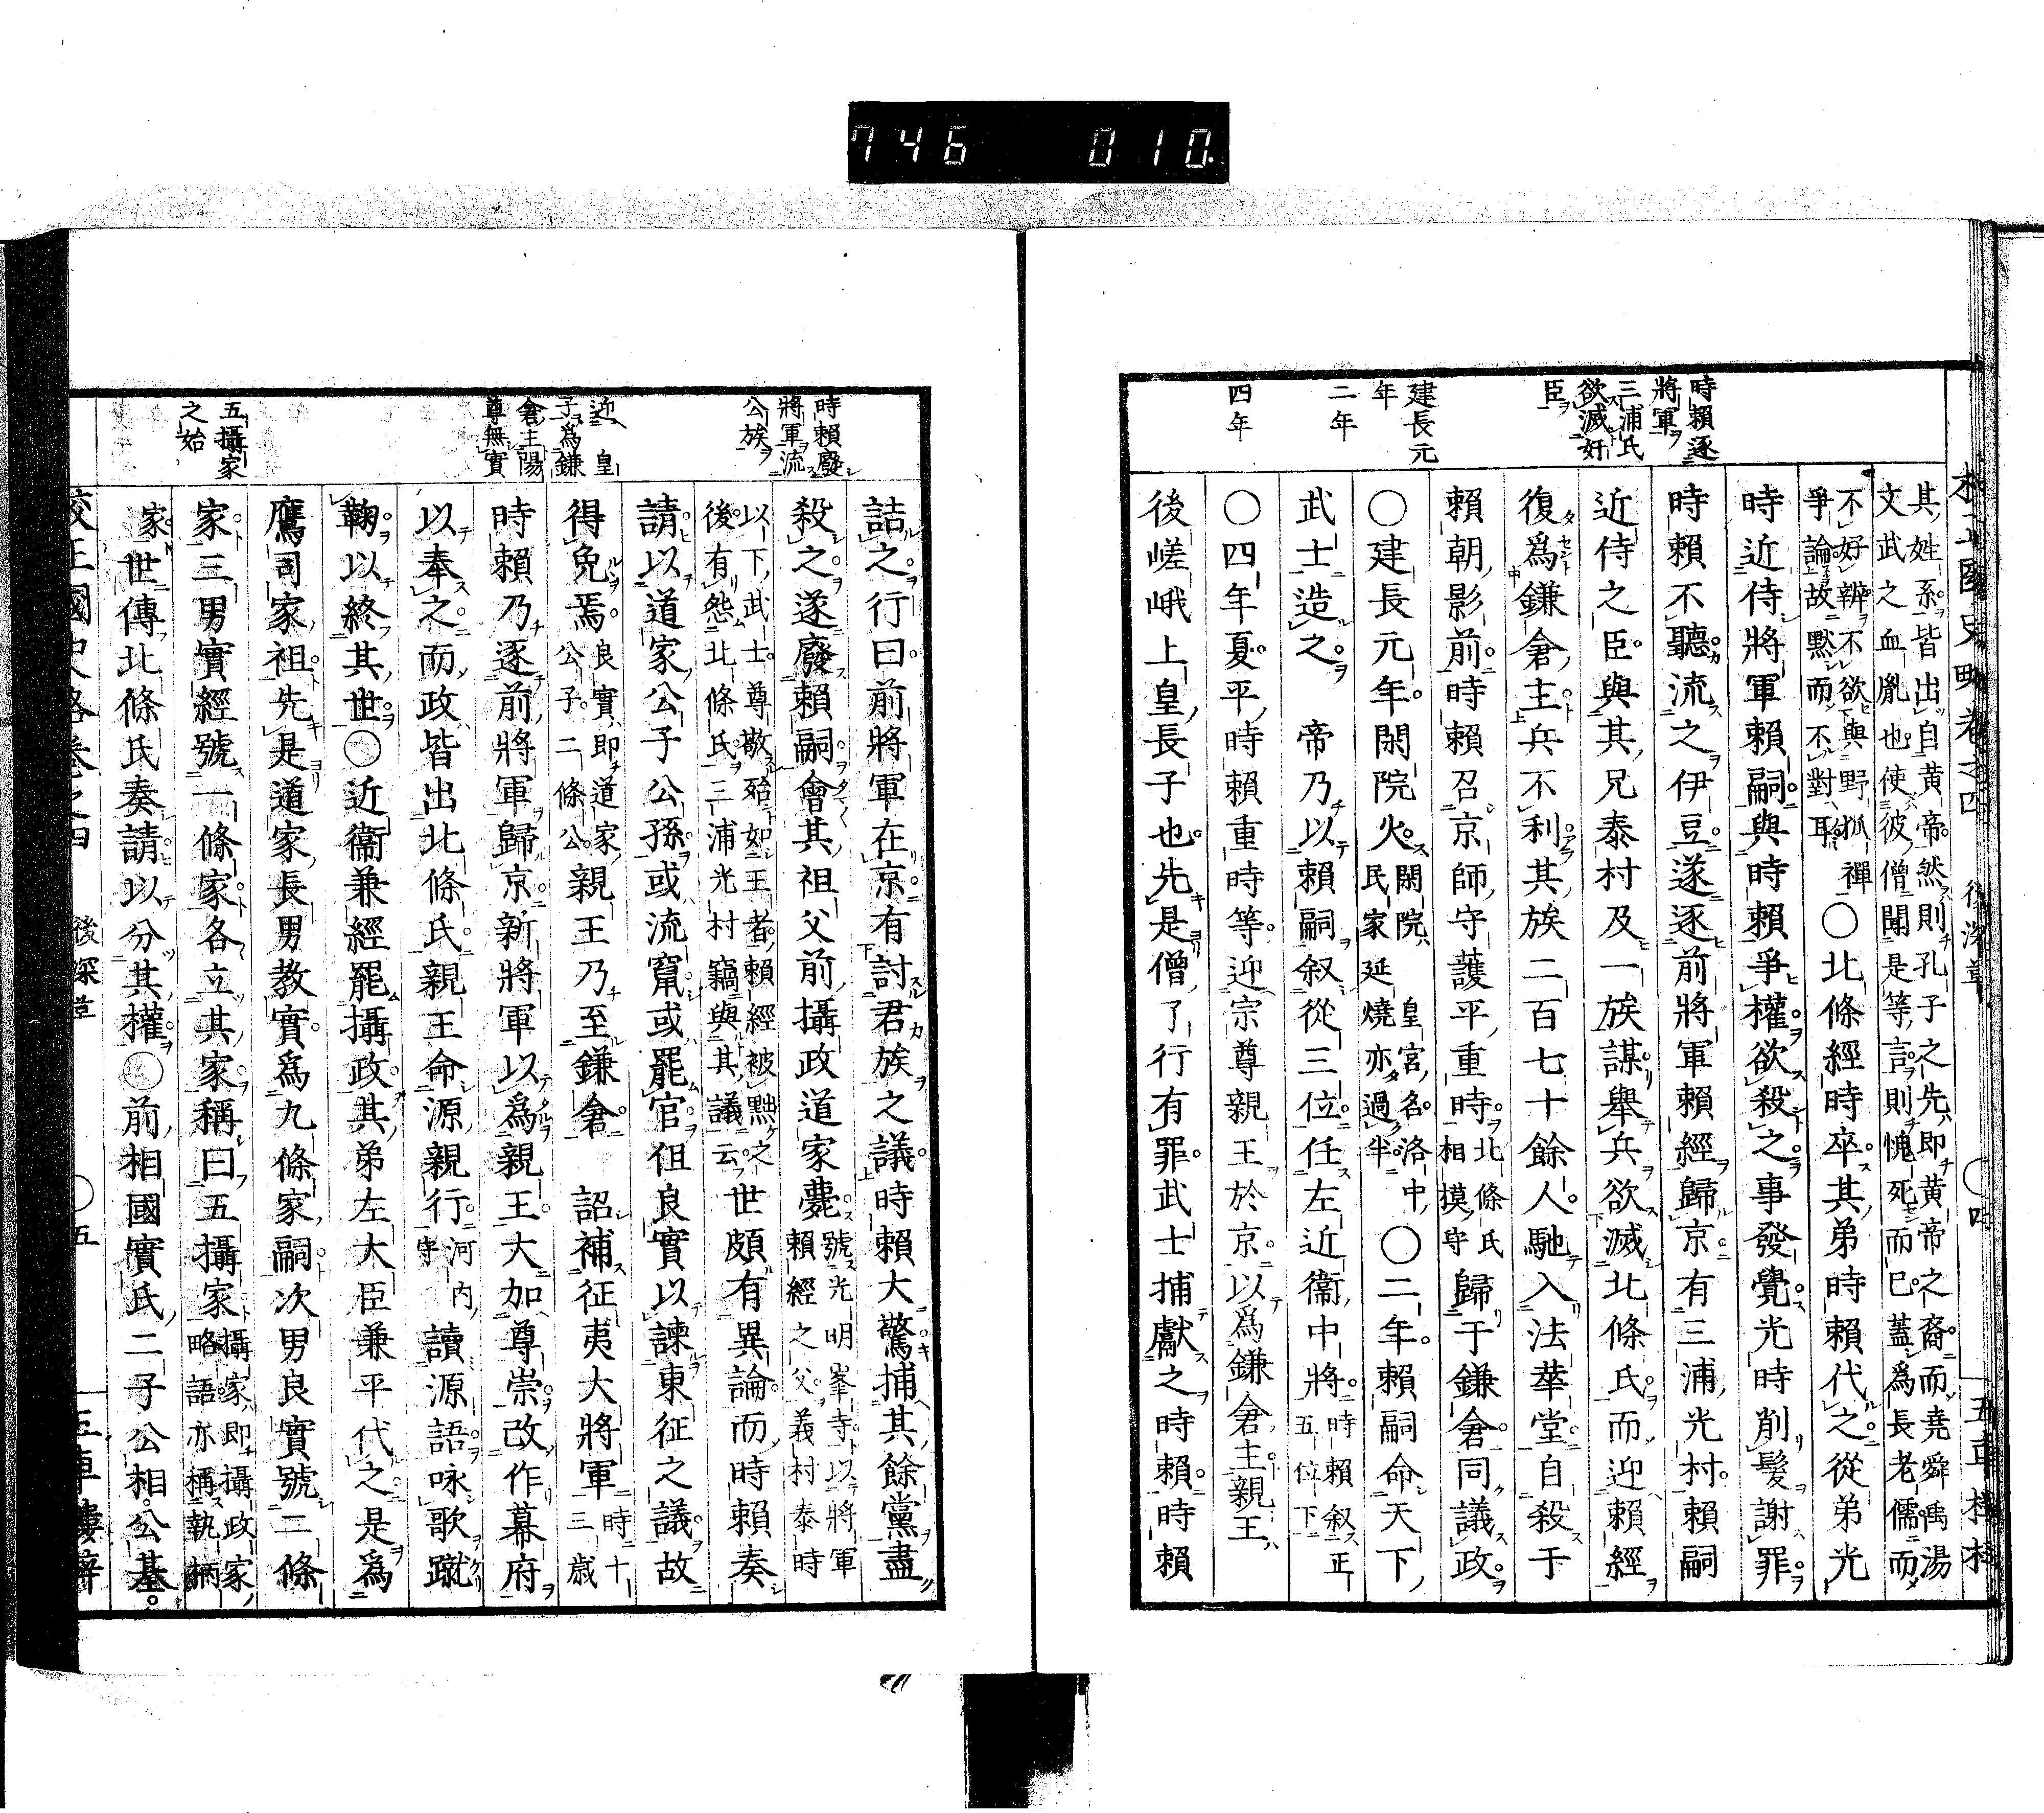 746 010
時賴逐
將軍
三浦氏
欲滅奸
臣
建長元
年
二年
四年
其姓系皆出自黃帝然則孔子之先即黃帝之裔而堯舜禹湯
文武之血胤也使彼僧聞是等言則愧死而已蓋為長老儒而
不好辨不欲與野狐禪
爭論故默而不對耳
○北條經時卒其弟時賴代之從弟光
時近侍將軍賴嗣與時賴爭權欲殺之事發覺光時削髮謝罪
時賴不聽流之伊豆遂逐前將軍賴經歸京有三浦光村賴嗣
近侍之臣與其兄泰村及一族謀舉兵欲滅北條氏而迎賴經
復為鎌倉主兵不利其族二百七十餘人馳入法華堂自殺于
賴朝影前時賴召京師守護平重時
北條氏
相摸守
歸于鎌倉同議政
○建長元年閑院火
閑院皇宮名洛中
民家延燒亦過半
○二年賴嗣命天下
武士造之 帝乃以賴嗣叙從三位任左近衞中將
時賴叙正
五位下
○四年夏平時賴重時等迎宗尊親王於京以為鎌倉主親王
後嵯峨上皇長子也先是僧了行有罪武士捕獻之時賴時賴
時賴廢
將軍流
公族
迎皇
子為鎌
倉主陽
尊無實
五攝家
之始
詰之行曰前將軍在京有討君族之議時賴大驚捕其餘黨盡
殺之遂廢賴嗣會其祖父前攝政道家薨
號光明峯寺以將軍
賴經之父義村泰時
以下武士尊敬殆如王者賴經被黜之
後有怨北條氏三浦光村竊與其議云
世頗有異論而時賴奏
請以道家公子公孫或流竄或罷官但良實以諫東征之議故
得免焉
良實即道家
公子二條公
親王乃至鎌倉 詔補征夷大將軍
時十
三歲
時賴乃逐前將軍歸京新將軍以為親王大加尊崇改作幕府
以奉之而政皆出北條氏親王命源親行
河內
守
讀源語咏歌蹴
鞠以終其世○近衞兼經罷攝政其弟左大臣兼平代之是為
鷹司家祖先是道家長男教實為九條家嗣次男良實號二條
家三男實經號一條家各立其家稱曰五攝家
攝家即攝政家
略語亦稱執柄
家
世傳北條氏奏請以分其權○前相國實氏二子公相公基
後深草 ○五